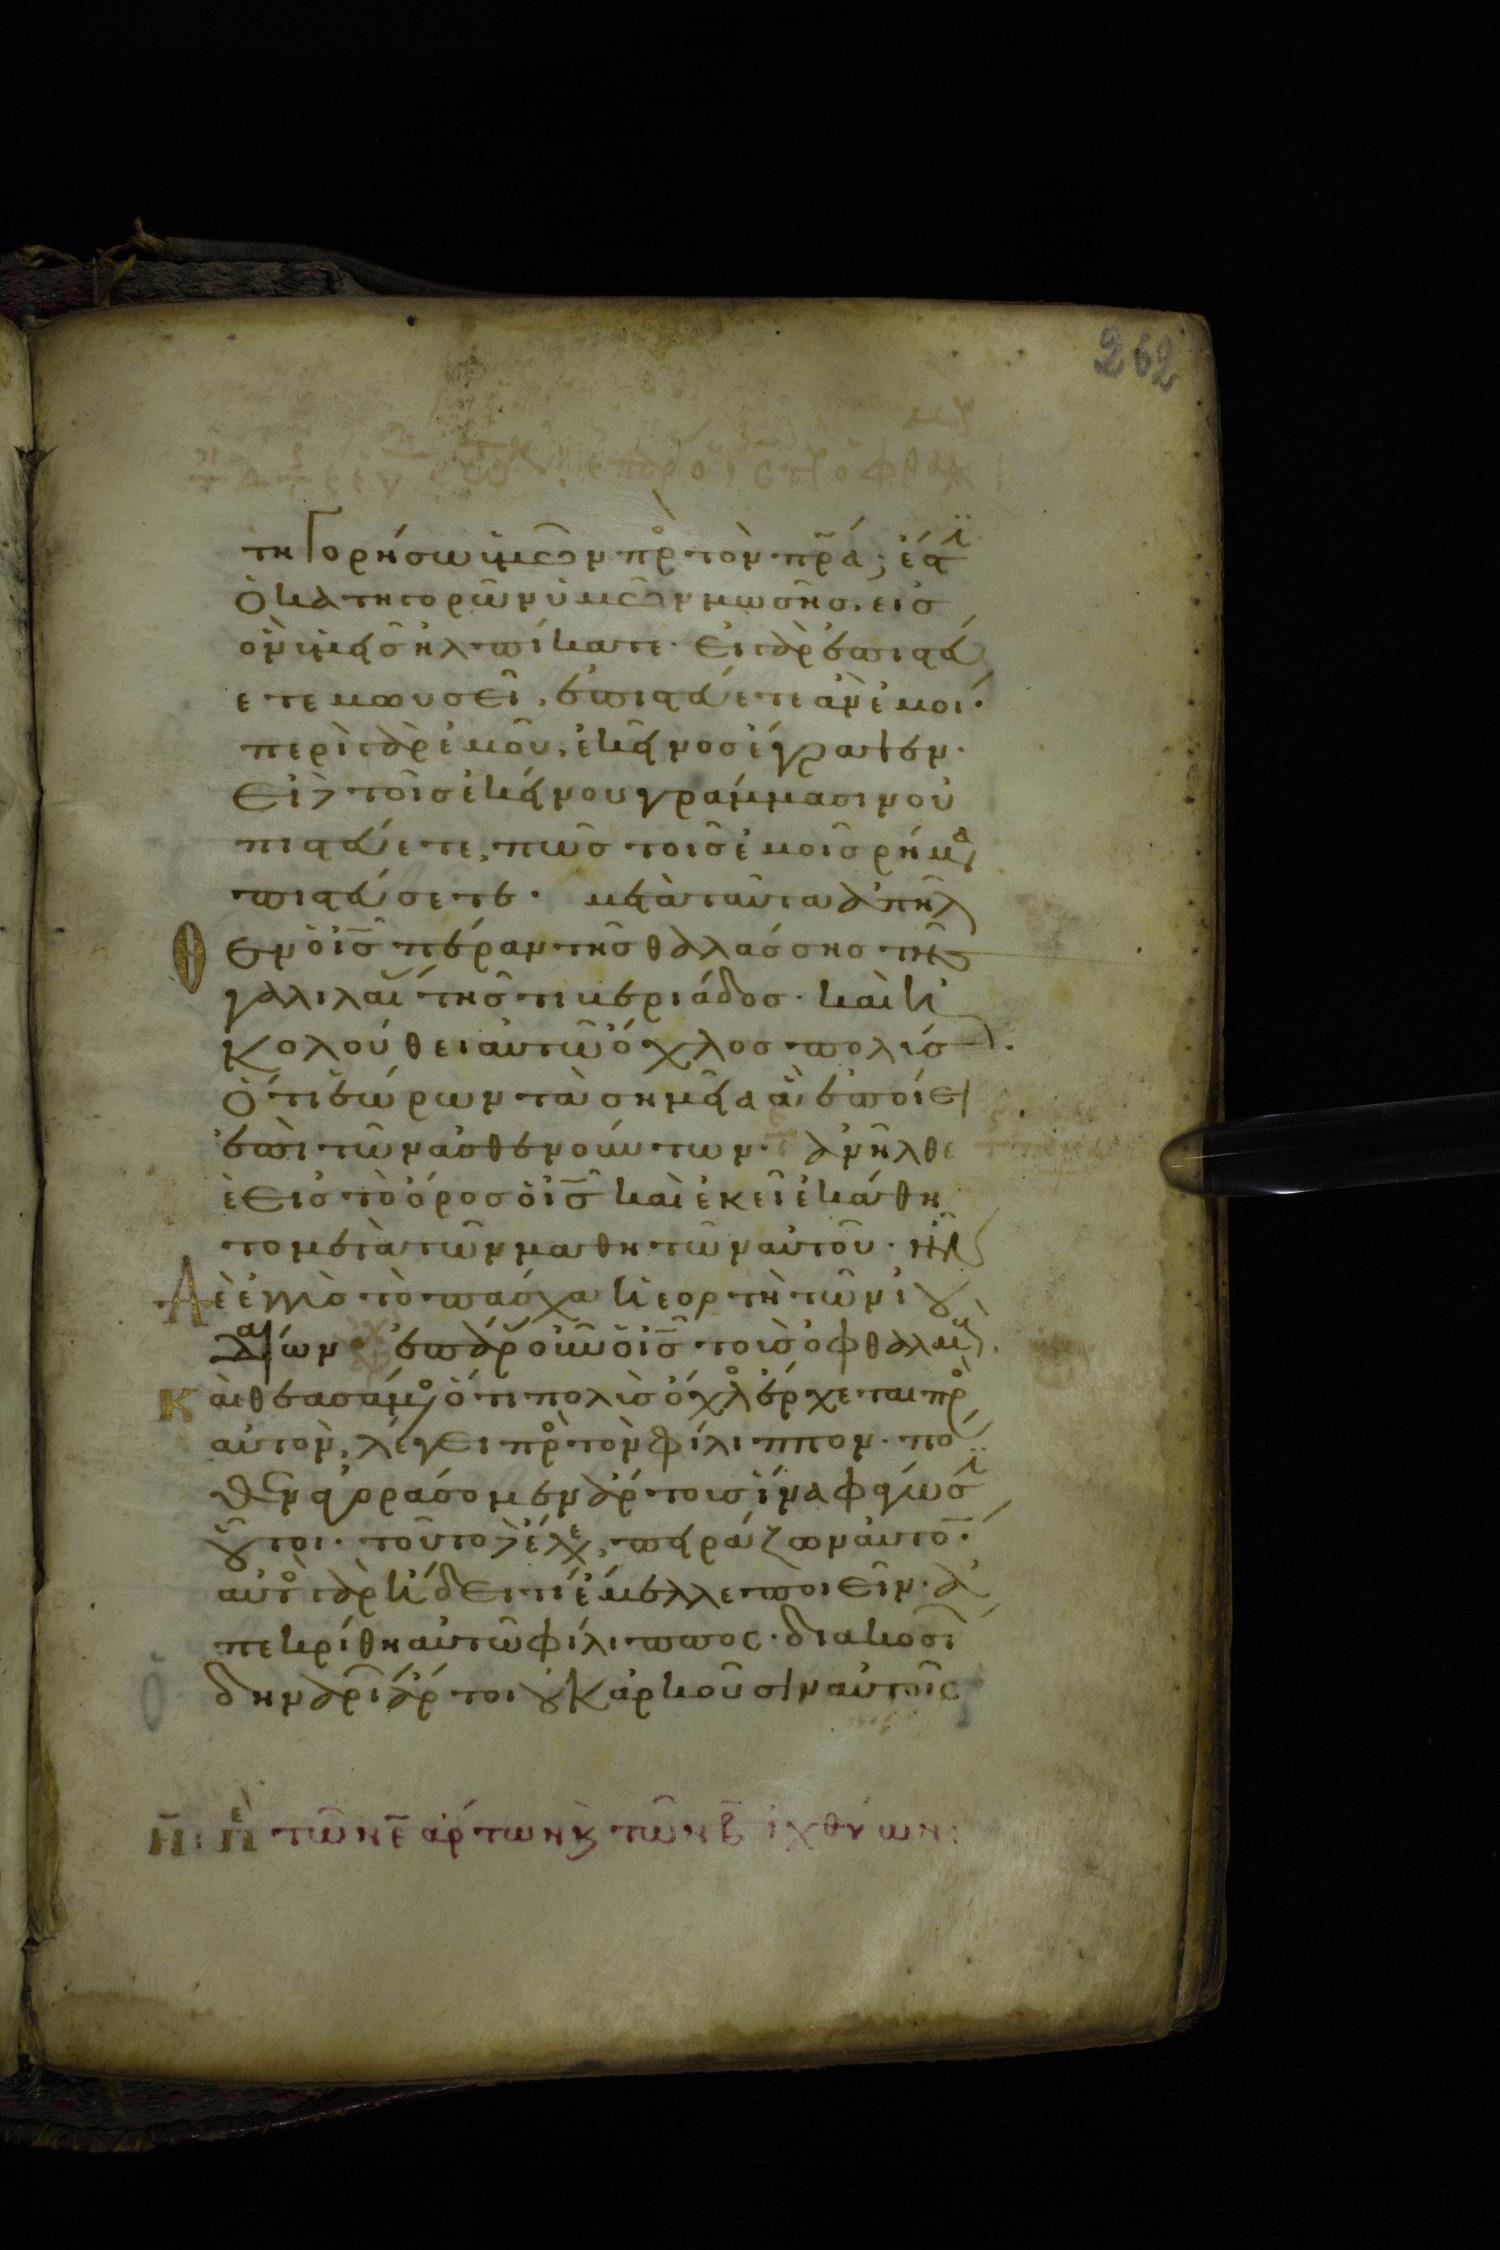 262
τηγορήσω ὑμῶν πρ τὸν πρα· ἔστϊ
ὁ κατηγορῶν ὑμῶν μωσῆς, εἰσ
ὃν ὑμεῖς ἠλπίκατε· εἰ γὰρ ἐπιστεύ
ετε μωυσεῖ, ἐπιστεύετε ἂν ἐμοί·
περὶ γὰρ ἐμοῦ, ἐκεῖνος ἔγραψεν·
εἰ δε τοῖς ἐκείνου γράμμασιν οὐ
πιστεύετε, πῶς τοῖς ἐμοῖς ρήμα
πιστεύσετε· μετὰ ταῦτα ἀπῆλ
θεν ὁ ις πέραν τῆς θαλάσσης τῆς
γαλιλαί τῆς τιβεριάδος· καὶ ἠ
κολούθει αὐτῶ ὄχλος πολύς·
ὅτι ἑώρων τὰ σημεῖα ἃ ἐποίει
ἐπὶ τῶν ἀσθενούντων· ἀνῆλθε
δὲ εἰς τὸ ὄρος ὁ ις καὶ ἐκεῖ ἐκάθη
το μετὰ τῶν μαθητῶν αὐτοῦ· ἦν
δὲ ἐγγὺς τὸ πάσχα ἡ ἑορτὴ τῶν ἰου
δαίων· ἐπάρ οὖν ὁ ις τοὺς ὀφθαλμ
καὶ θεασάμ ὅτι πολὺς ὄχλ ἔρχεται πρ
αὐτὸν, λέγει πρ τὸν φίλιππον· πό
θεν ἀγοράσομεν ἄρτους ἵνα φάγωσϊ
οὗτοι· τοῦτο δε ἔλεγε, πειράζων αὐτό·
αὐτ γὰρ ἤδει τί ἔμελλε ποιεῖν· ἀ
πεκρίθη αὐτῶ φίλιππος· διακοσί
ων δηναρί ἄρτοι οὐκ ἀρκοῦσιν αὐτοῖς
τῶν ε ἄρτων κ τῶν β ἰχθύων: